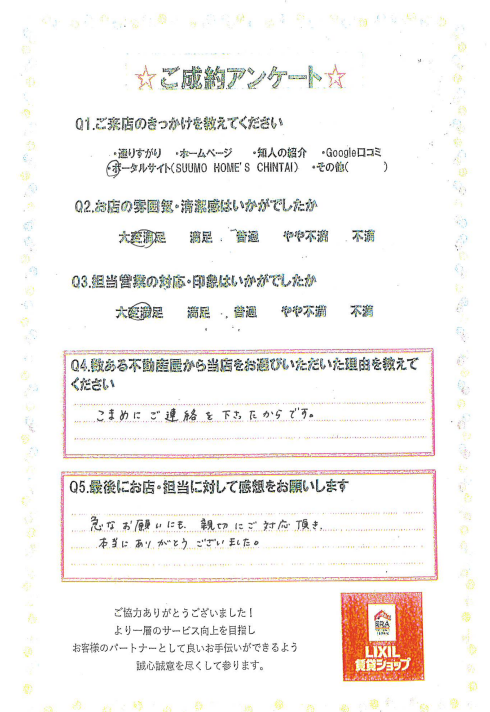 ☆ご成約アンケート☆
Q1.ご来店のきっかけを教えてください
・通りすがり ・ホームページ ・知人の紹介 ・Google口コミ
・ポータルサイト(SUUMO HOME'S CHINTAI) ・その他( )
Q2.お店の雰囲気・清潔感はいかがでしたか
大変満足 満足 普通 やや不満 不満
Q3.担当営業の対応・印象はいかがでしたか
大変満足 満足 普通 やや不満 不満
Q4.数ある不動産屋から当店をお選びいただいた理由を教えて
ください
こまめにご連絡を下さったからです。
Q5.最後にお店・担当に対して感想をお願いします
急なお願いにも、親切にご対応頂き、
本当にありがとうございました。
ご協力ありがとうございました!
より一層のサービス向上を目指し
お客様のパートナーとして良いお手伝いができるよう
誠心誠意を尽くして参ります。
ERA
LIXIL
賃貸ショップ